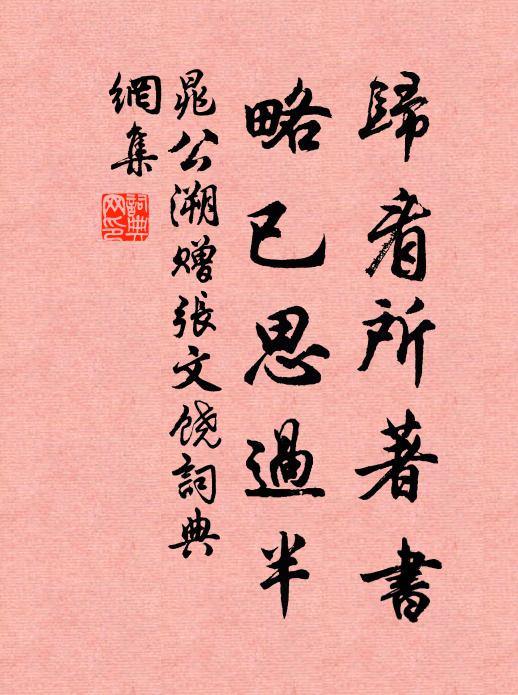 歸看所著書
略已思過半
晁公溯贈張文饒詞典
網集
詞典網印